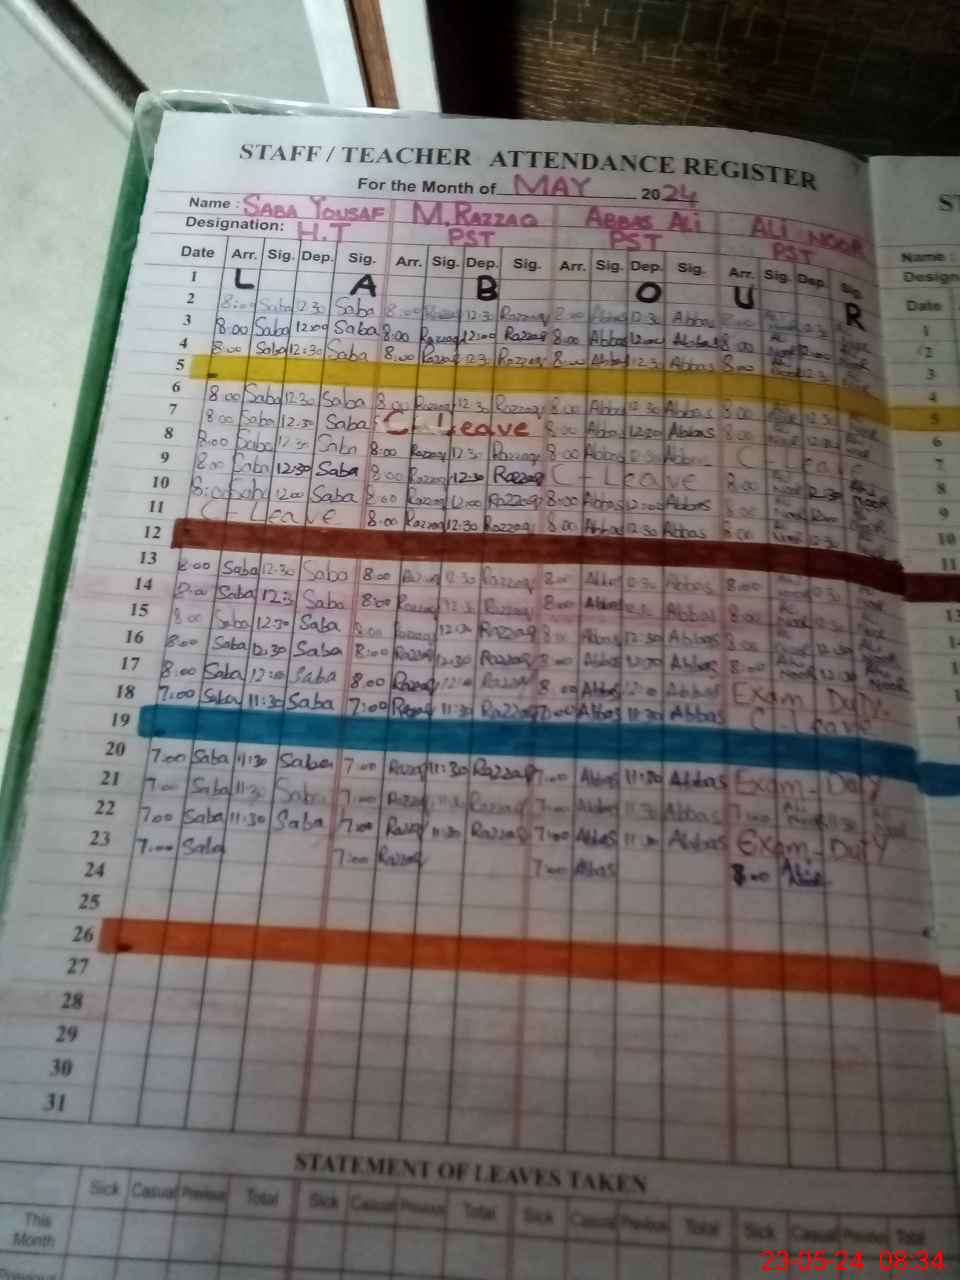 STAFF / TEACHER ATTENDANCE REGISTER
For the Month of MAY 2024
Name : SABA YOUSAF M.RAZZAQ ABBAS ALI ALI NOOR
Designation: H.T PST PST PST
Date Arr. Sig. Dep. Sig. Arr. Sig. Dep. Sig. Arr. Sig. Dep. Sig. Arr. Sig. Dep. Sig.
1 L A B O U R
2 8:00 Saba 12:30 Saba 8:00 12:30 Razzaq 8:00 Abbas 12:30 Abbas 8:00
3 8:00 Saba 12:00 Saba 8:00 Razzaq 12:00 Razzaq 8:00 Abbas 12:00 Abbas 8:00
4 8:00 Saba 12:30 Saba 8:00 Razzaq 12:30 Razzaq 8:00 Abbas 12:30 Abbas 8:00
5
6 8:00 Saba 12:30 Saba 8:00 Razzaq 12:30 Razzaq 8:00 Abbas 12:30 Abbas 8:00
7 8:00 Saba 12:30 Saba C-Leave 8:00 Abbas 12:30 Abbas 8:00
8 8:00 Saba 12:30 Saba 8:00 Razzaq 12:30 Razzaq 8:00 Abbas 12:30 Abbas C-Leave
9 8:00 Saba 12:30 Saba 8:00 Razzaq 12:30 Razzaq C-Leave 8:00 12:30
10 8:00 Saba 12:00 Saba 8:00 Razzaq 12:00 Razzaq 8:00 Abbas 12:00 Abbas 8:00
11 C-Leave 8:00 Razzaq 12:30 Razzaq 8:00 Abbas 12:30 Abbas 8:00 12:30
12
13 8:00 Saba 12:30 Saba 8:00 12:30 Razzaq 8:00 Abbas 12:30 Abbas 8:00
14 8:00 Saba 12:3 Saba 8:00 Razzaq 12:30 Razzaq 8:00 Abbas Abbas 8:00
15 8:00 Saba 12:30 Saba 8:00 Razzaq 12:30 Razzaq 8:00 Abbas 12:30 Abbas 8:00
16 8:00 Saba 12:30 Saba 8:00 Razzaq 12:30 Razzaq 8:00 Abbas 12:30 Abbas 8:00
17 8:00 Saba 12:00 Saba 8:00 Razzaq 12:00 Razzaq 8:00 Abbas 12:00 Abbas Exam Duty.
18 7:00 Saba 11:30 Saba 7:00 Razzaq 11:30 Razzaq 7:00 Abbas 11:30 Abbas C-Leave
19
20 7:00 Saba 11:30 Saba 7:00 Razzaq 11:30 Razzaq 7:00 Abbas 11:30 Abbas Exam-Duty
21 7:00 Saba 11:30 Saba 7:00 Razzaq Razzaq 7:00 Abbas 11:30 Abbas 7:00
22 7:00 Saba 11:30 Saba 7:00 Razzaq 11:30 Razzaq 7:00 Abbas 11:30 Abbas Exam-Duty
23 7:00 Saba 7:00 Razzaq 7:00 Abbas 8:00
24
25
26
27
28
29
30
31
STATEMENT OF LEAVES TAKEN
Sick Casual Previous Total Sick Casual Previous Total Sick Casual Previous Total Sick Casual Previous Total
This Month
Previous
ST
Name :
Design
Date
1
2
3
4
5
6
7
8
9
10
11
13
23-05-24 08:34